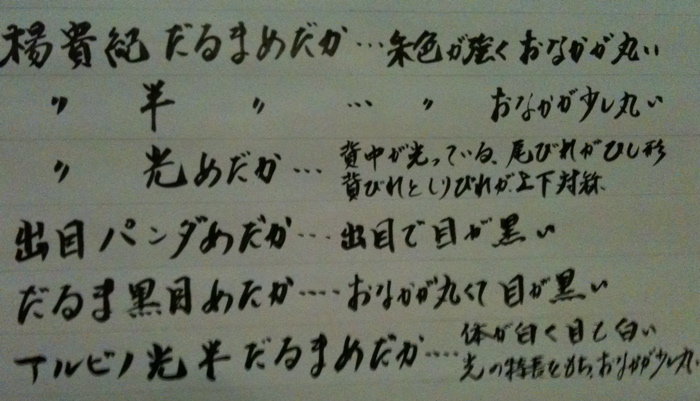 楊貴紀 だるまめだか…朱色が強くおなかが丸い
〃 半 〃 … 〃 おなかが少し丸い
〃 光めだか… 背中が光っている、尾びれがひし形
背びれとしりびれが上下対称
出目パンダめだか…出目で目が黒い
だるま黒目めだか‥‥おなかが丸くて目が黒い
アルビノ光半だるまめだか‥‥体が白く目も白い
光の特長をもち、おなかが少し丸い